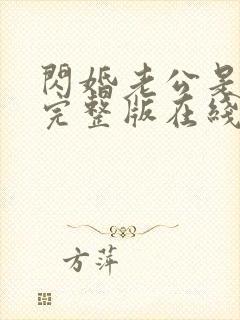 閃婚老公是
完整版在綫
方萍